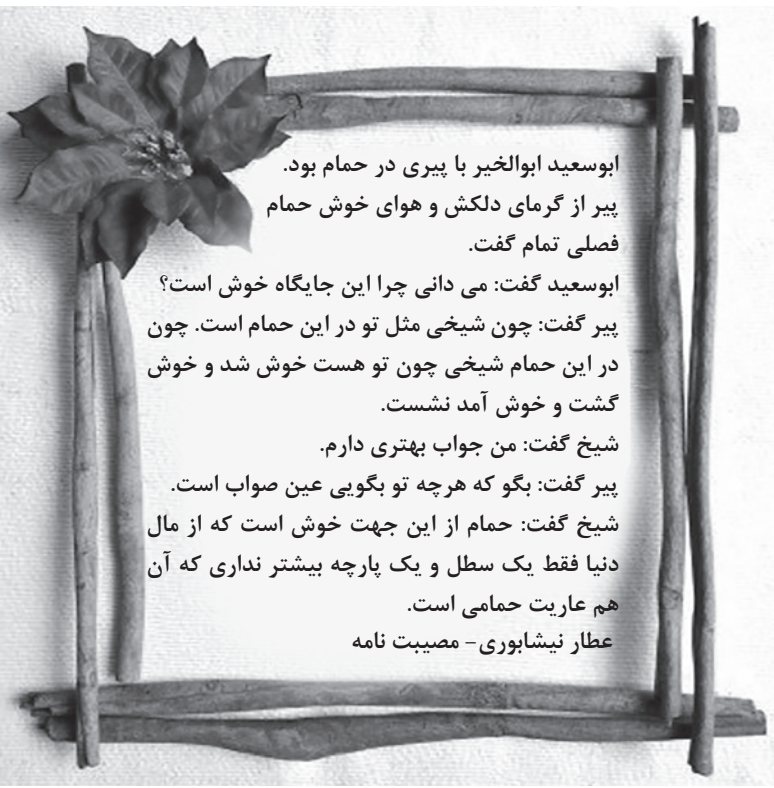 ابوسعید ابوالخیر با پیری در حمام بود.
پیر از گرمای دلکش و هوای خوش حمام
فصلی تمام گفت.
ابوسعید گفت: می دانی چرا این جایگاه خوش است؟
پیر گفت: چون شیخی مثل تو در این حمام است. چون
در این حمام شیخی چون تو هست خوش شد و خوش
گشت و خوش آمد نشست.
شیخ گفت: من جواب بهتری دارم.
پیر گفت: بگو که هرچه تو بگویی عین صواب است.
شیخ گفت: حمام از این جهت خوش است که از مال
دنیا فقط یک سطل و یک پارچه بیشتر نداری که آن
هم عاریت حمامی است.
عطار نیشابوری- مصیبت نامه